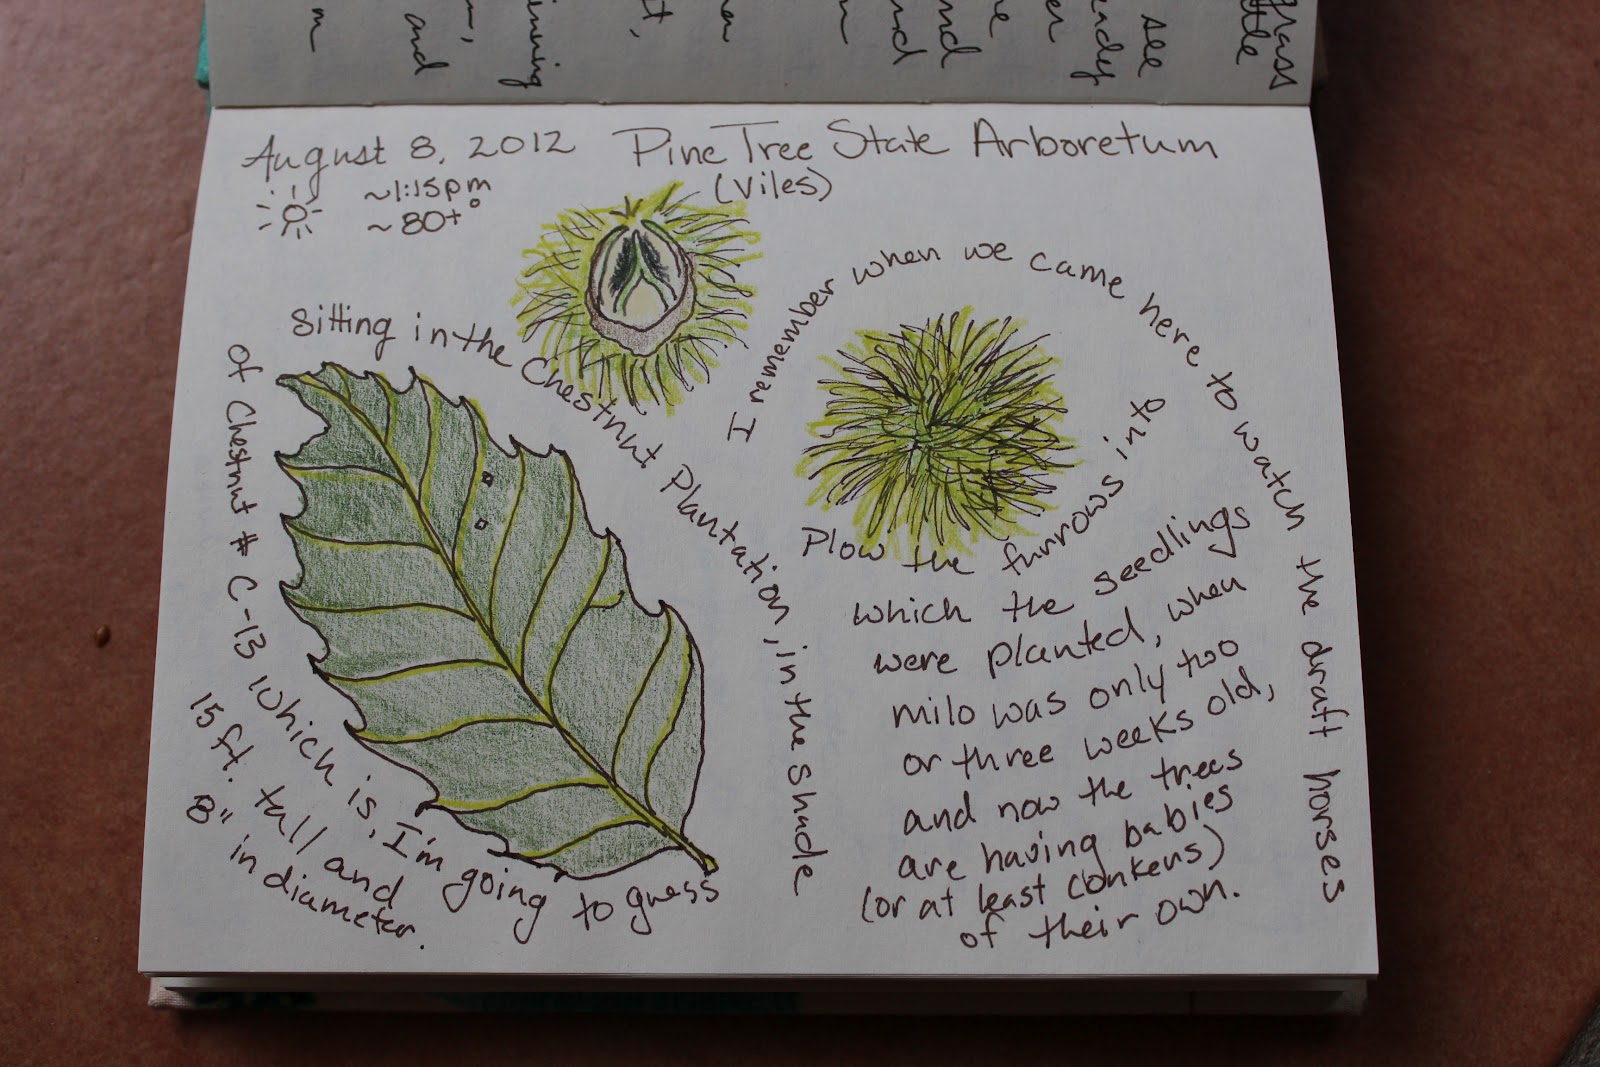 grass
ttle
see
eady
er
e
nd
and
m
t,
inning
m,
and
m
August 8, 2012 Pine Tree State Arboretum
(Viles)
~1:15pm
~80+°
Sitting in the Chestnut Plantation, in the shade
of Chestnut # C-13 which is, I'm going to guess
15 ft. tall and
8" in diameter.
I remember when we came here to watch the draft horses
Plow the furrows into
which the seedlings
were planted, when
milo was only two
or three weeks old,
and now the trees
are having babies
(or at least conkers)
of their own.